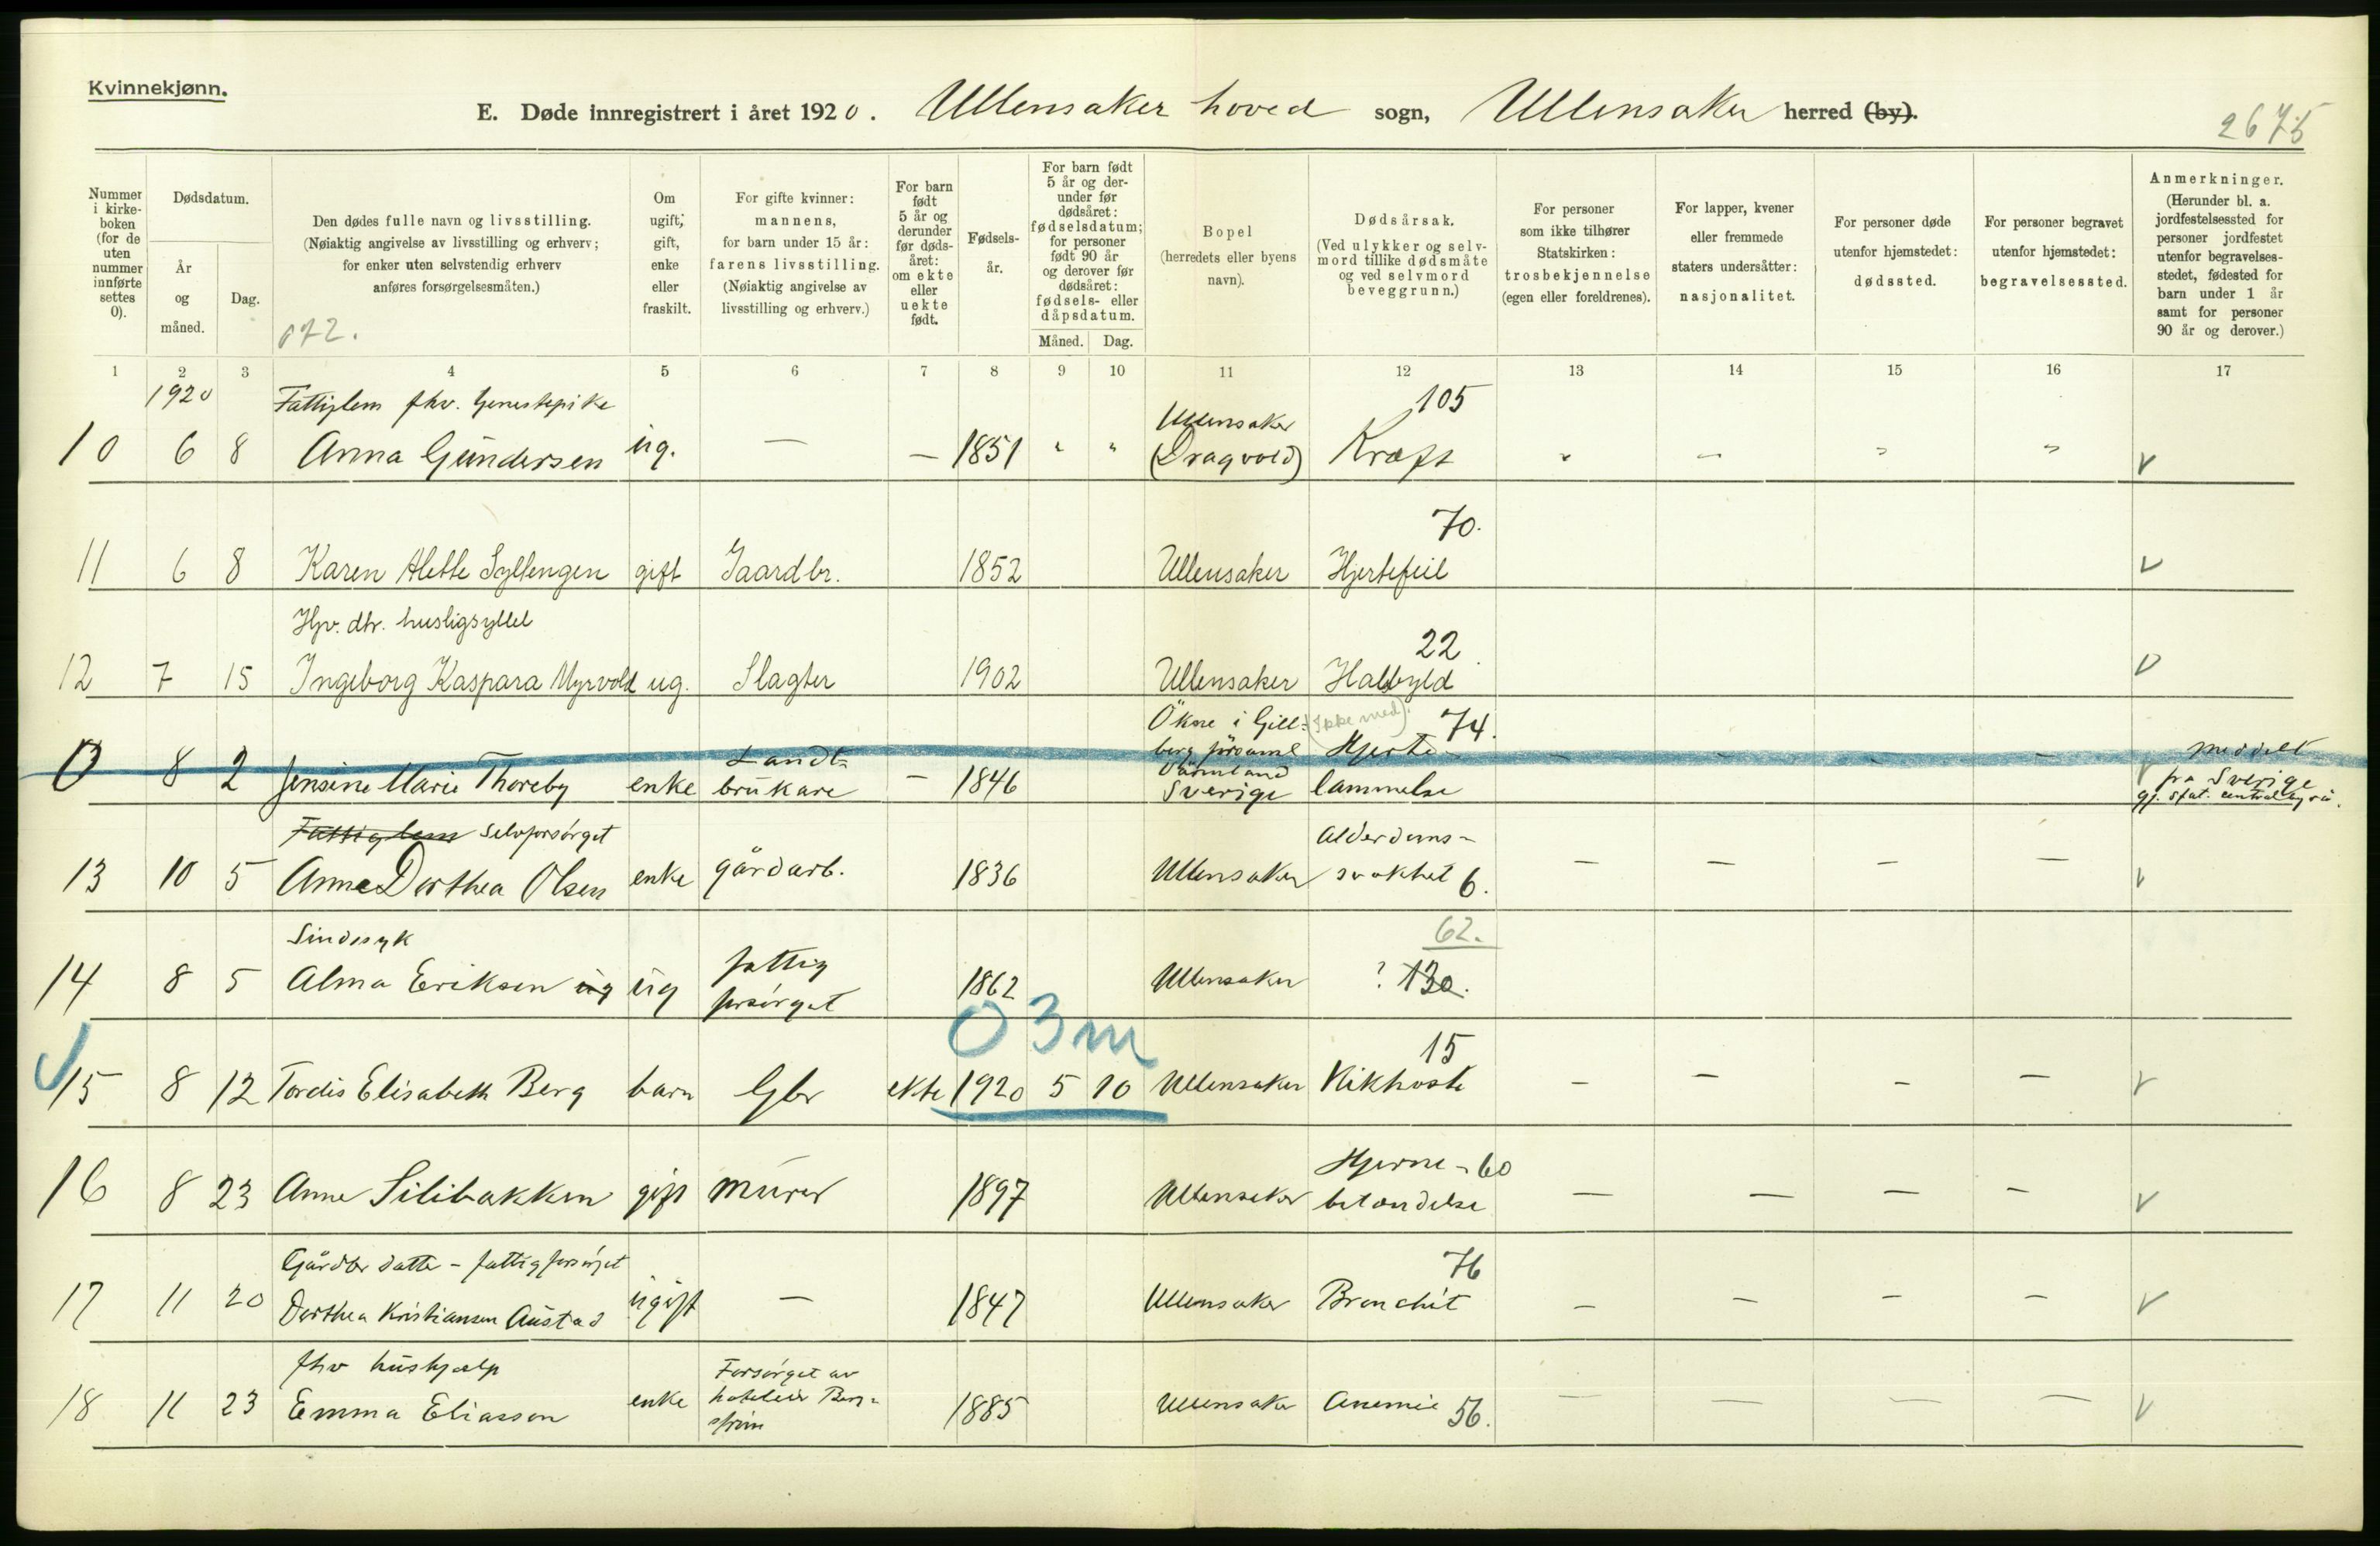 Kvinnekjønn.
E. Døde innregistrert i året 1920. Ullensaker hoved sogn, Ullensaker herred (by).
2675
Nummer i kirkeboken (for de uten nummer innførte settes 0).
Dødsdatum.
År og måned.
Dag.
Den dødes fulle navn og livsstilling.
(Nøiaktig angivelse av livsstilling og erhverv;
for enker uten selvstendig erhverv
anføres forsørgelsesmåten.)
072.
Om ugift, gift, enke eller fraskilt.
For gifte kvinner: mannens, for barn under 15 år: farens livsstilling. (Nøiaktig angivelse av livsstilling og erhverv.)
For barn født 5 år og derunder før dødsåret: om ekte eller uekte født.
Fødselsår.
For barn født 5 år og derunder før dødsåret: fødselsdatum; for personer født 90 år og derover før dødsåret: fødsels- eller dåpsdatum.
Måned. Dag.
Bopel (herredets eller byens navn).
Dødsårsak. (Ved ulykker og selvmord tillike dødsmåte og ved selvmord beveggrunn.)
For personer som ikke tilhører Statskirken: trosbekjennelse (egen eller foreldrenes).
For lapper, kvener eller fremmede staters undersåtter: nasjonalitet.
For personer døde utenfor hjemstedet: dødssted.
For personer begravet utenfor hjemstedet: begravelsessted.
Anmerkninger. (Herunder bl. a. jordfestelsessted for personer jordfestet utenfor begravelsesstedet, fødested for barn under 1 år samt for personer 90 år og derover.)
1 2 3 4 5 6 7 8 9 10 11 12 13 14 15 16 17
1920 Fattiglem fhv. tjenestepike Ullensaker 105
10 6 8 Anna Gundersen ug. — — 1851 " " (Dragvold) Kræft " — " " V
70.
11 6 8 Karen Alette Gyllengen gift Gaardbr. 1852 Ullensaker Hjertefeil V
Hjv. dtr. huslig syssel 22
12 7 15 Ingeborg Kaspara Myrvold ug. Slagter 1902 Ullensaker Halsbyld V
Ökne i Gillberg församl Värmland Sverige (Ikke med). 74.
0 8 2 Jensine Marie Thoreby enke Landtbrukare — 1846 Hjertelammelse - - - - meddelt fra Sverige gj. stat. centralbyrå.
Fattiglem selvforsørget Alderdoms-
13 10 5 Anne Dorthea Olsen enke gårdarb. 1836 Ullensaker svakhet 6. — — — — V
Sindssyk 62.
14 8 5 Alma Eriksen ug ug fattig forsørget 1862 Ullensaker ? 130.
0 3 m 15
15 8 12 Tordis Elisabeth Berg barn Gbr ekte 1920 5 10 Ullensaker Kikhoste — — — — V
Hjerne- 60
16 8 23 Anne Silibakken gift murer 1897 Ullensaker betændelse — — — — V
Gårdbr datter - fattigforsørget 76
17 11 20 Dorthea Kristiansen Austad ugift — 1847 Ullensaker Bronchit — — — — V
fhv hushjælp Forsørget av
18 11 23 Emma Eliasson enke hoteleier Bergstrøm 1885 Ullensaker Anemie 56. — — — — V